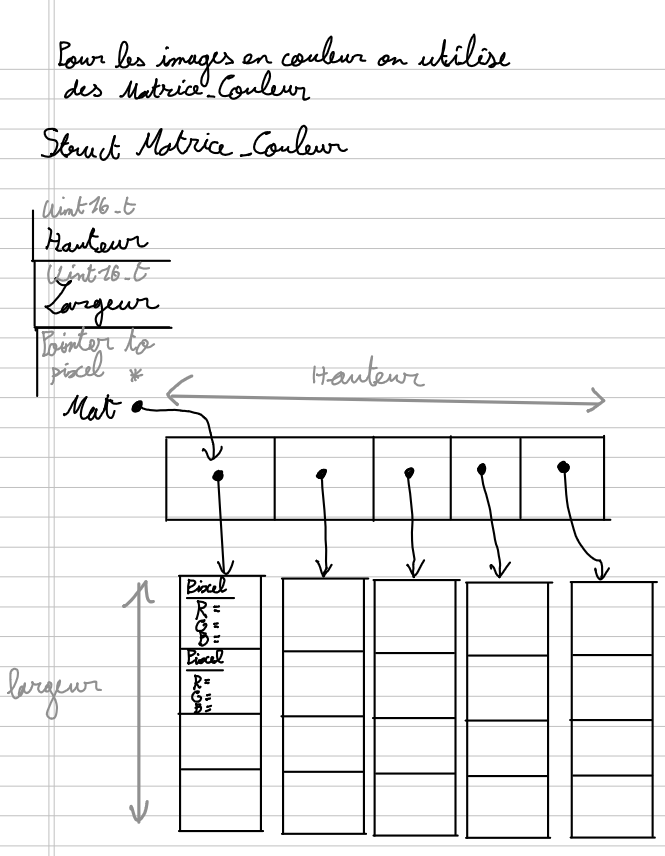 Pour les images en couleur on utilise
des Matrice_Couleur
Struct Matrice_Couleur
Uint16_t
Hauteur
Uint16_t
Largeur
Pointer to
pixel *
Mat
Hauteur
largeur
Pixel
R=
G=
B=
Pixel
R=
G=
B=